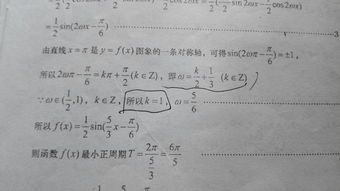 = 1/2 sin(2ωx − π/6) ……3
由直线 x=π 是 y=f(x) 图象的一条对称轴, 可得 sin(2ωπ − π/6) = ±1,
所以 2ωπ − π/6 = kπ + π/2 (k∈Z), 即 ω = k/2 + 1/3 (k∈Z)
∵ω∈(1/2,1), k∈Z, 所以 k=1, ω = 5/6
所以 f(x) = 1/2 sin(5/3 x − π/6)
则函数 f(x) 最小正周期 T = 2π/(5/3) = 6π/5